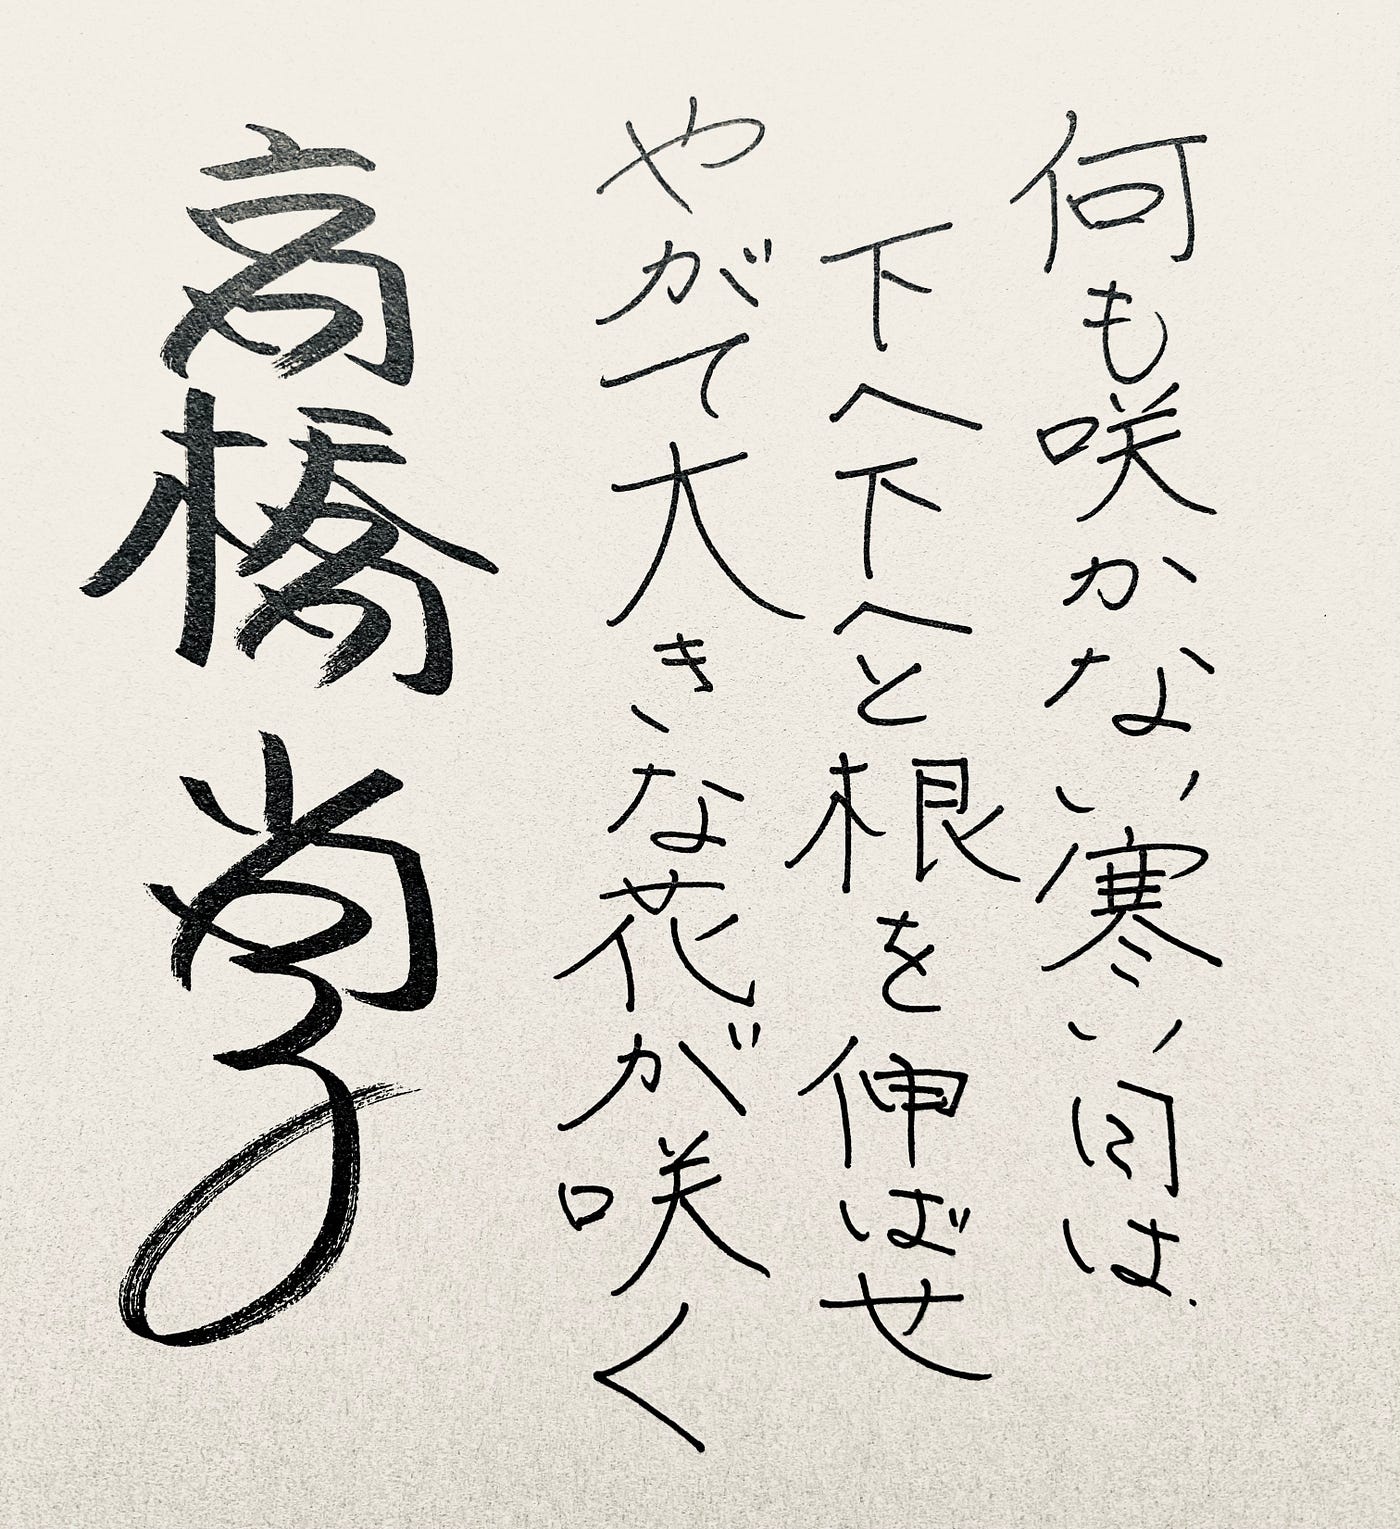 何も咲かない寒い日は、
下へ下へと根を伸ばせ
やがて大きな花が咲く
高橋尚子